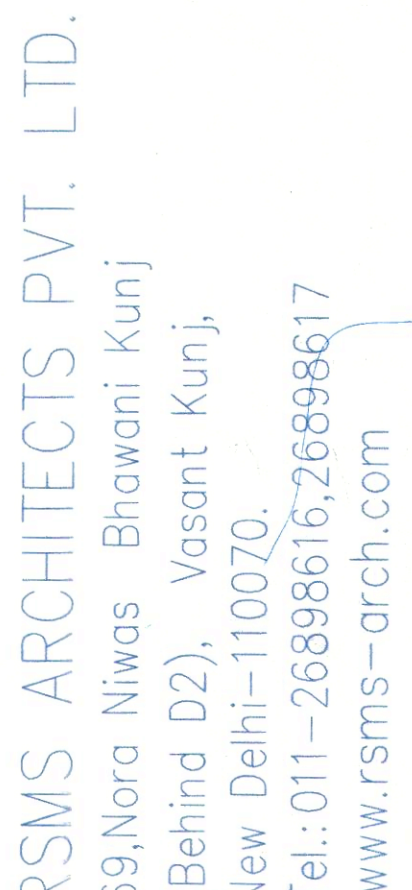 RSMS ARCHITECTS PVT. LTD.
69,Nora Niwas Bhawani Kunj
Behind D2), Vasant Kunj,
New Delhi-110070.
Tel.: 011-26898616,26898617
www.rsms-arch.com